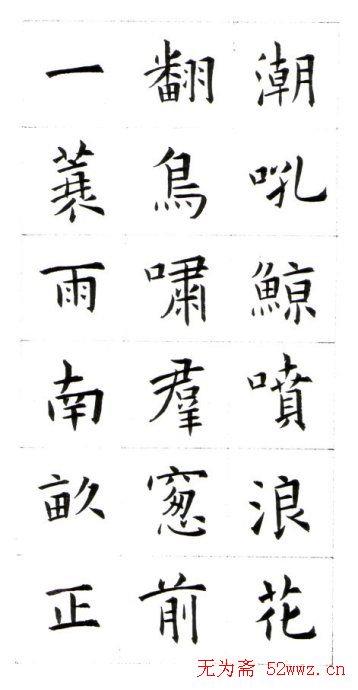 潮吼鯨噴浪花
翻鳥嘯羣窓前
一蓑雨南畝正
无为斋 52wwz.cn